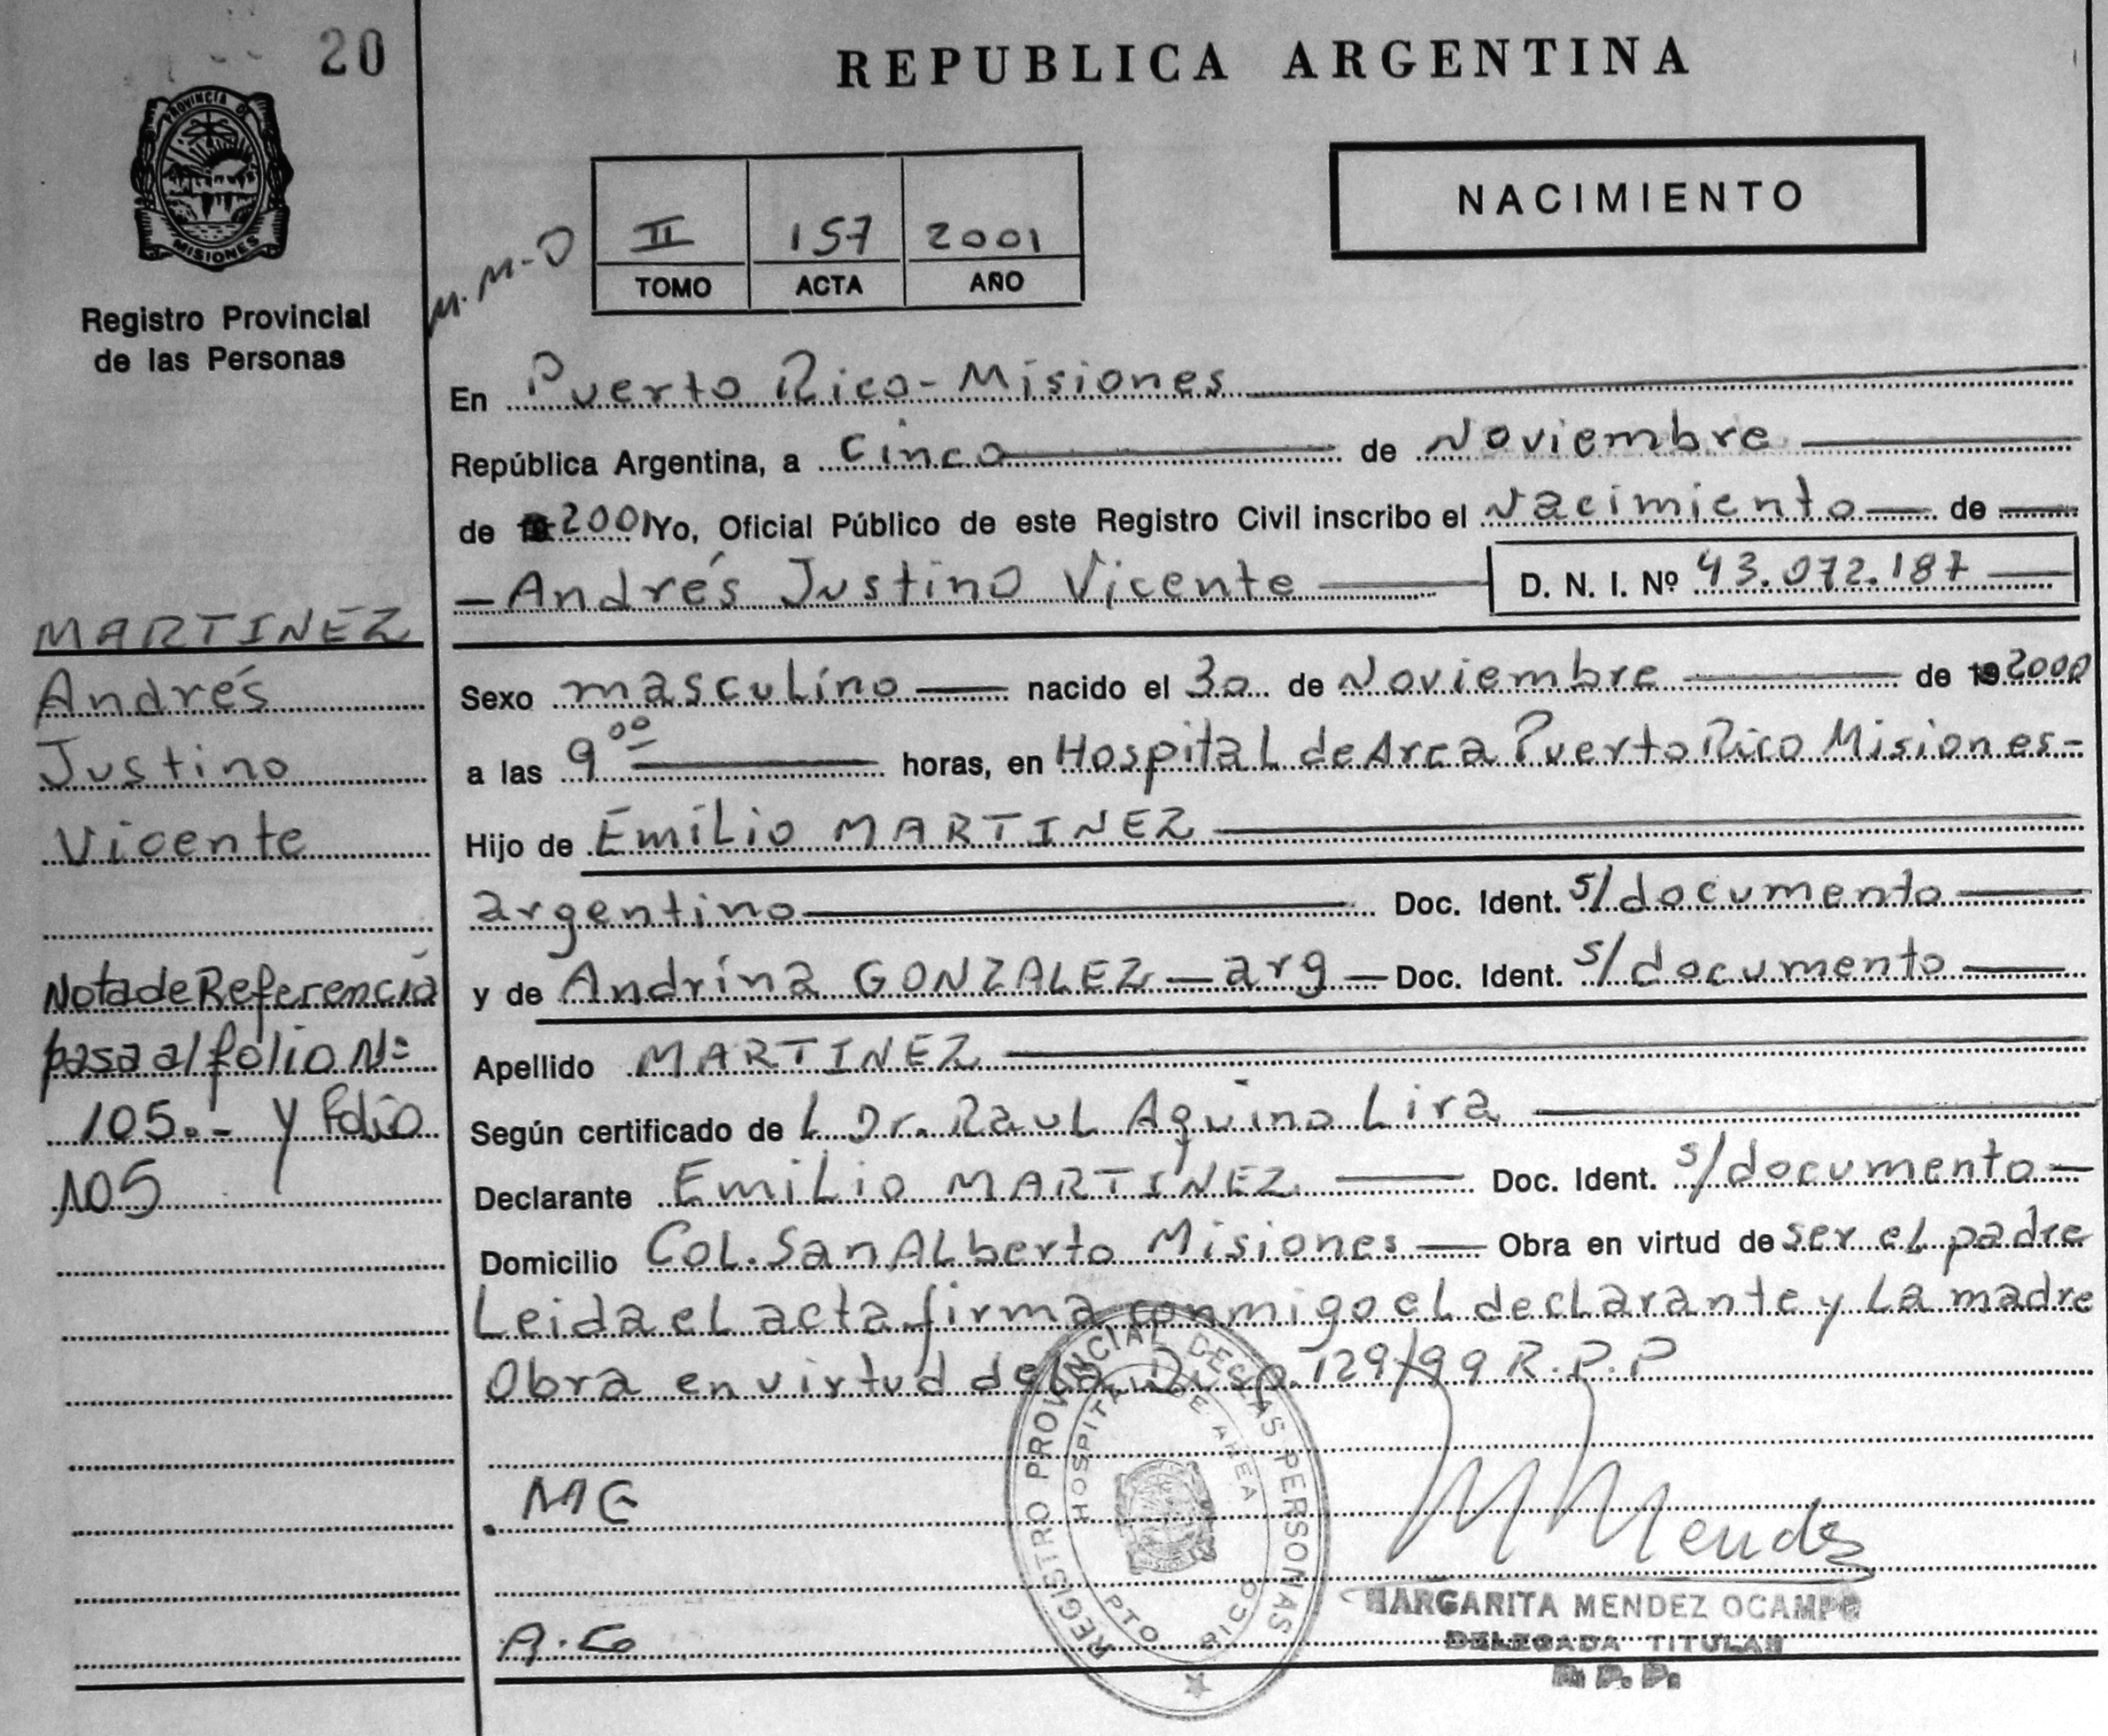 20
REPUBLICA ARGENTINA
PROVINCIA DE
MISIONES
Registro Provincial
de las Personas
M. M-O
II 157 2001
TOMO ACTA AÑO
NACIMIENTO
En Puerto Rico - Misiones
República Argentina, a cinco de Noviembre
de 2001 Yo, Oficial Público de este Registro Civil inscribo el Nacimiento de
- Andrés Justino Vicente D. N. I. Nº 43.072.187
MARTINEZ
Andrés
Justino
Vicente
Nota de Referencia
pasa al folio Nº
105.- y folio
105
Sexo masculino nacido el 30 de Noviembre de 19 2000
a las 9 00 horas, en Hospital de Area Puerto Rico Misiones -
Hijo de Emilio MARTINEZ
argentino Doc. Ident. s/documento
y de Andrina GONZALEZ - arg - Doc. Ident. s/documento
Apellido MARTINEZ
Según certificado de L Dr. Raul Aquino Lira
Declarante Emilio MARTINEZ Doc. Ident. s/documento
Domicilio Col. San Alberto Misiones Obra en virtud de ser el padre
Leida el acta firma conmigo el declarante y La madre
Obra en virtud de la Disp. 129/99 R.P.P
REGISTRO PROVINCIAL DE LAS PERSONAS
HOSPITAL DE AREA
PTO RICO
ME
M Mendz
A.Go
MARGARITA MENDEZ OCAMPO
DELEGADA TITULAR
R. P. P.